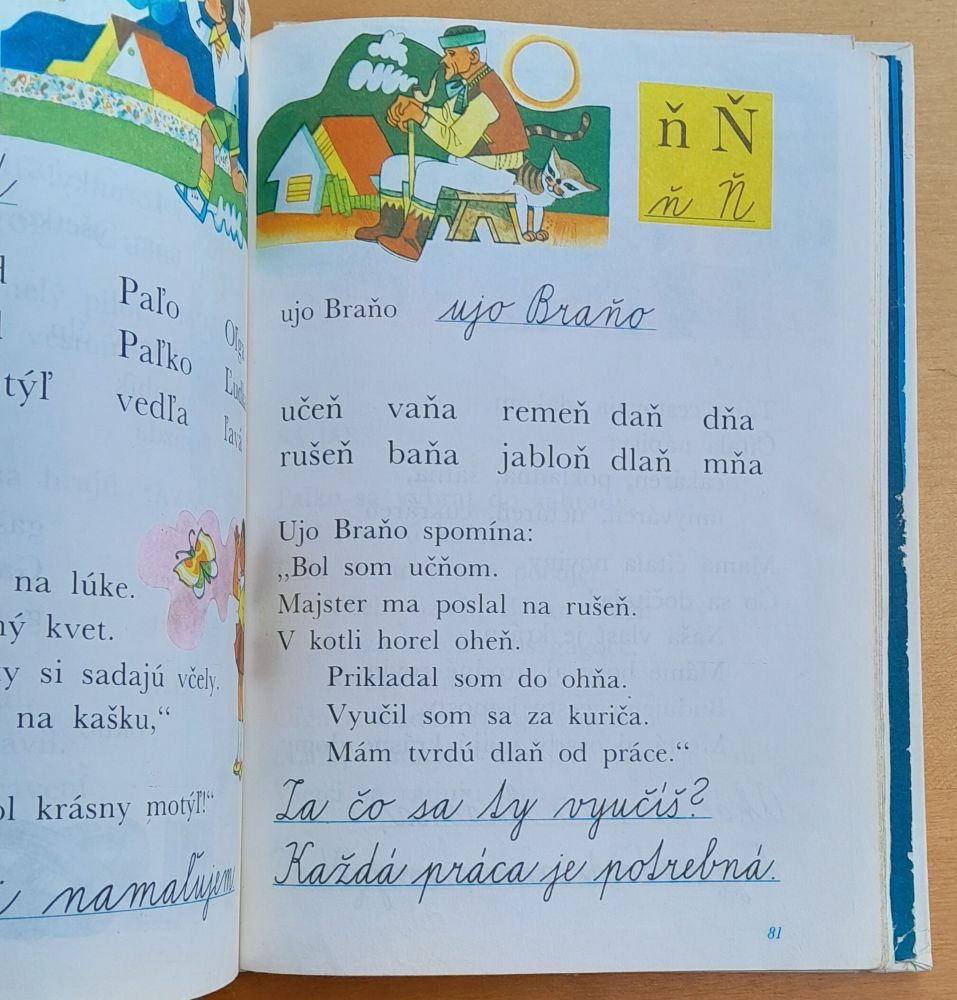 Paľo
Paľko
týľ
vedľa
na lúke.
kvet.
si sadajú včely.
na kašku,“
krásny motýľ!“
namaľujem
ň Ň
ň Ň
ujo Braňo ujo Braňo
učeň vaňa remeň daň dňa
rušeň baňa jabloň dlaň mňa
Ujo Braňo spomína:
„Bol som učňom.
Majster ma poslal na rušeň.
V kotli horel oheň.
Prikladal som do ohňa.
Vyučil som sa za kuriča.
Mám tvrdú dlaň od práce.“
Za čo sa ty vyučíš?
Každá práca je potrebná.
81